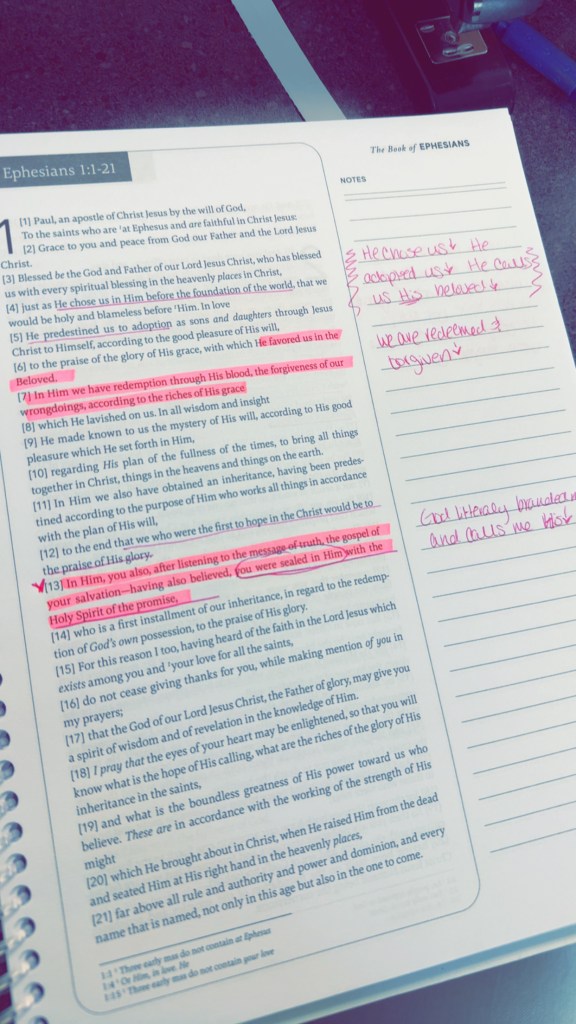 Ephesians 1:1-21
The Book of EPHESIANS
NOTES
1 [1] Paul, an apostle of Christ Jesus by the will of God,
To the saints who are ¹at Ephesus and are faithful in Christ Jesus:
[2] Grace to you and peace from God our Father and the Lord Jesus
Christ.
[3] Blessed be the God and Father of our Lord Jesus Christ, who has blessed
us with every spiritual blessing in the heavenly places in Christ,
[4] just as He chose us in Him before the foundation of the world, that we
would be holy and blameless before ¹Him. In love
[5] He predestined us to adoption as sons and daughters through Jesus
Christ to Himself, according to the good pleasure of His will,
[6] to the praise of the glory of His grace, with which He favored us in the
Beloved.
[7] In Him we have redemption through His blood, the forgiveness of our
wrongdoings, according to the riches of His grace
[8] which He lavished on us. In all wisdom and insight
[9] He made known to us the mystery of His will, according to His good
pleasure which He set forth in Him,
[10] regarding His plan of the fullness of the times, to bring all things
together in Christ, things in the heavens and things on the earth.
[11] In Him we also have obtained an inheritance, having been predes-
tined according to the purpose of Him who works all things in accordance
with the plan of His will,
[12] to the end that we who were the first to hope in the Christ would be to
the praise of His glory.
[13] In Him, you also, after listening to the message of truth, the gospel of
your salvation—having also believed, you were sealed in Him with the
Holy Spirit of the promise,
[14] who is a first installment of our inheritance, in regard to the redemp-
tion of God's own possession, to the praise of His glory.
[15] For this reason I too, having heard of the faith in the Lord Jesus which
exists among you and ¹your love for all the saints,
[16] do not cease giving thanks for you, while making mention of you in
my prayers;
[17] that the God of our Lord Jesus Christ, the Father of glory, may give you
a spirit of wisdom and of revelation in the knowledge of Him.
[18] I pray that the eyes of your heart may be enlightened, so that you will
know what is the hope of His calling, what are the riches of the glory of His
inheritance in the saints,
[19] and what is the boundless greatness of His power toward us who
believe. These are in accordance with the working of the strength of His
might
[20] which He brought about in Christ, when He raised Him from the dead
and seated Him at His right hand in the heavenly places,
[21] far above all rule and authority and power and dominion, and every
name that is named, not only in this age but also in the one to come.
1:1 ¹ Three early mss do not contain at Ephesus
1:4 ¹ Or Him, in love. He
1:15 ¹ Three early mss do not contain your love
He chose us He
adopted us He calls
us His beloved
we are redeemed &
forgiven
God literally branded
and calls me His